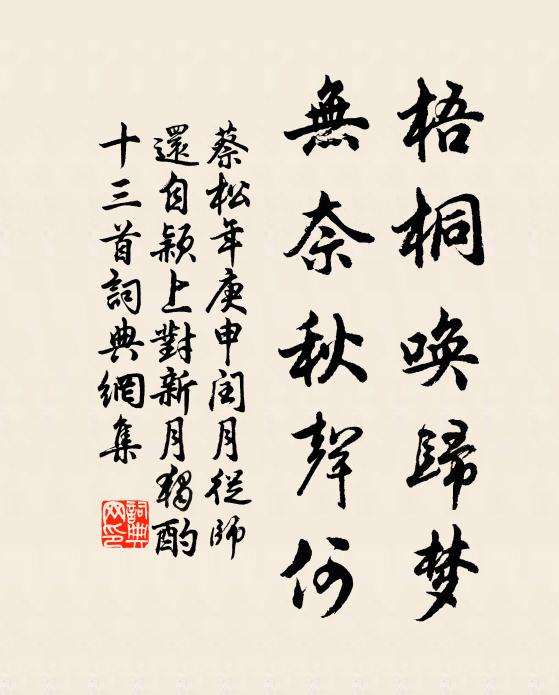 梧桐唤歸梦
無奈秋聲何
蔡松年庚申闰月從師
還自颍上對新月獨酌
十三首詞典網集
詞典
网印